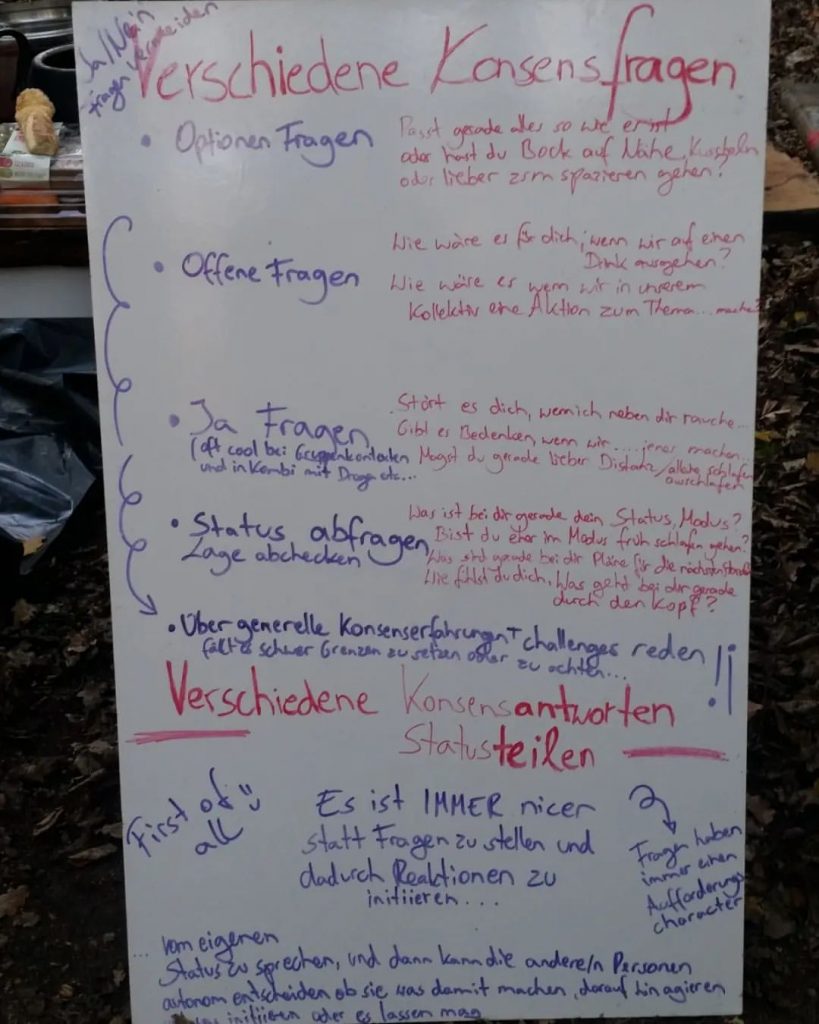 Ja/Nein
Fragen vermeiden
Verschiedene Konsensfragen
• Optionen Fragen
Passt gerade alles so wie es ist
oder hast du Bock auf Nähe, Kuscheln
oder lieber zum spazieren gehen?
• Offene Fragen
Wie wäre es für dich, wenn wir auf einen
Drink ausgehen?
Wie wäre es wenn wir in unserem
Kollektiv eine Aktion zum Thema... machen?
• Ja Fragen
(oft cool bei Gruppenkontexten
und in Kombi mit Drogen etc...
Stört es dich, wenn ich neben dir rauche...
Gibt es Bedenken, wenn wir ..... jenes machen...
Magst du gerade lieber Distanz/alleine schlafen
ausschlafen
• Status abfragen
Lage abchecken
Was ist bei dir gerade dein Status, Modus?
Bist du eher im Modus früh schlafen gehen?
Was sind gerade bei dir Pläne für die nächsten Stunden
Wie fühlst du dich, Was geht bei dir gerade
durch den Kopf?
• Über generelle Konsenserfahrungen + challenges reden !!
fällt es schwer Grenzen zu setzen oder zu achten...
Verschiedene Konsensantworten
Status teilen
First of
all
Es ist IMMER nicer
statt Fragen zu stellen und
dadurch Reaktionen zu
initiieren...
Fragen haben
immer einen
Aufforderungs
character
... vom eigenen
Status zu sprechen, und dann kann die andere/n Personen
autonom entscheiden ob sie was damit machen, darauf hin agieren
initiieren oder es lassen mag